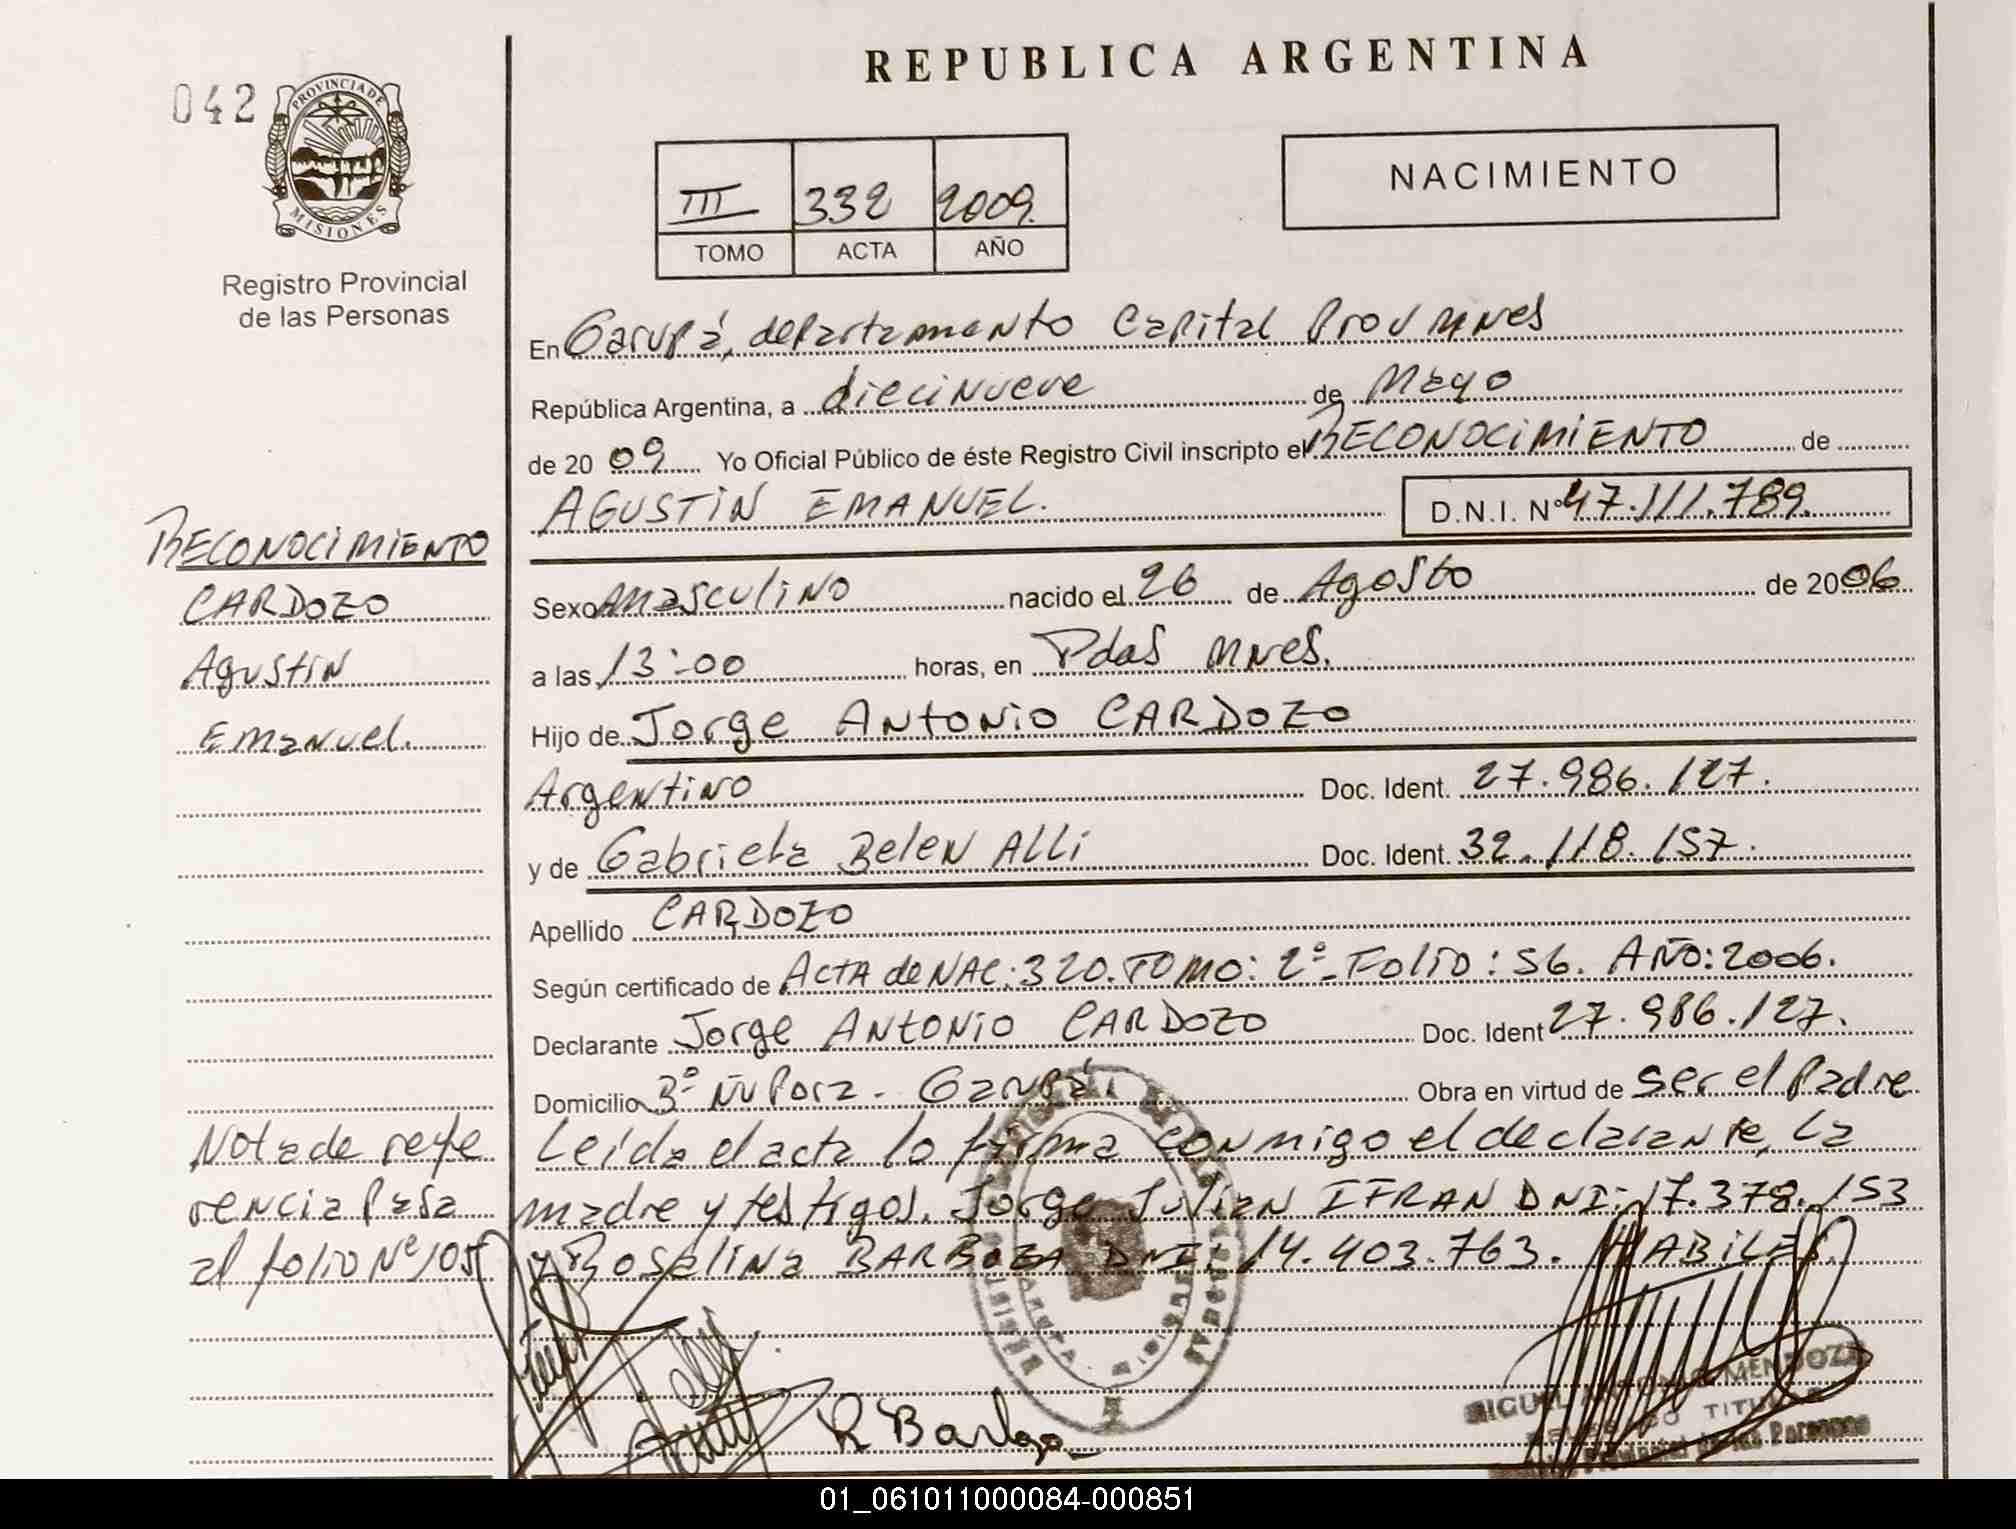 REPUBLICA ARGENTINA
042
PROVINCIA DE
MISIONES
Registro Provincial
de las Personas
III 332 2009
TOMO ACTA AÑO
NACIMIENTO
En Garupá, departamento Capital Prov Mnes
República Argentina, a diecinueve de Mayo
de 2009 Yo Oficial Público de éste Registro Civil inscripto el RECONOCIMIENTO de
AGUSTIN EMANUEL. D.N.I. Nº 47.111.789.
Sexo masculino nacido el 26 de Agosto de 2006
a las 13:00 horas, en Pdas Mnes.
Hijo de Jorge Antonio CARDOZO
Argentino Doc. Ident. 27.986.127.
y de Gabriela Belen Alli Doc. Ident. 32.118.157.
Apellido CARDOZO
Según certificado de Acta de NAC: 320. TOMO: 2º- Folio: 56. AÑO: 2006.
Declarante Jorge Antonio CARDOZO Doc. Ident 27.986.127.
Domicilio Bº Ñu Pora - Garupá. Obra en virtud de ser el Padre
Leída el acta lo firma conmigo el declarante, la
madre y testigos. Jorge Julian IFRAN DNI: 17.378.153
y Rosalina BARBOZA DNI: 14.403.763. HABILES.
RECONOCIMIENTO
CARDOZO
Agustin
Emanuel.
Nota de refe
rencia Pasa
al folio Nº 105
R Barboza
MIGUEL ANTONIO MENDOZA
TITULAR
Provincial de las Personas
01_061011000084-000851